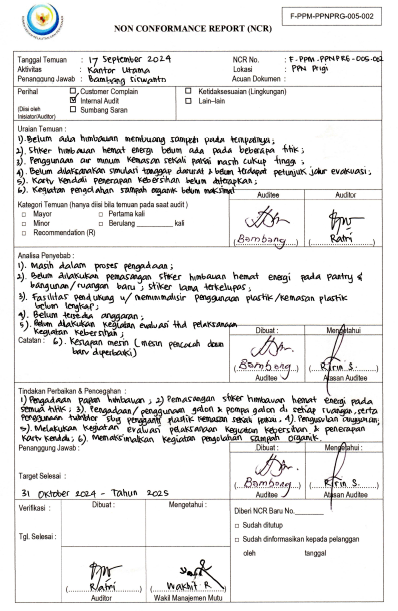 F-PPM-PPNPRG-005-002
NON CONFORMANCE REPORT (NCR)
Tanggal Temuan : 17 September 2024
NCR No. : F-PPM-PPNPRG-005-002
Aktivitas : Kantor Utama
Lokasi : PPN Prigi
Penanggung Jawab : Bambang Siswanto
Acuan Dokumen :
Perihal
(Diisi oleh Inisiator/Auditor)
□ Customer Complain
☑ Internal Audit
□ Sumbang Saran
□ Ketidaksesuaian (Lingkungan)
□ Lain-lain
Uraian Temuan :
1). Belum ada himbauan membuang sampah pada tempatnya;
2). Stiker himbauan hemat energi belum ada pada beberapa titik;
3). Penggunaan air minum kemasan sekali pakai masih cukup tinggi;
4). Belum dilaksanakan simulasi tanggap darurat & belum terdapat petunjuk jalur evakuasi;
5). Kartu kendali penerapan kebersihan belum diterapkan;
6). Kegiatan pengolahan sampah organik belum maksimal
Kategori Temuan (hanya diisi bila temuan pada saat audit)
□ Mayor
□ Pertama kali
□ Minor
□ Berulang ________ kali
□ Recommendation (R)
Auditee
(Bambang)
Auditor
(Ratri)
Analisa Penyebab :
1). Masih dalam proses pengadaan;
2). Belum dilakukan pemasangan stiker himbauan hemat energi pada pantry &
bangunan/ruangan baru; stiker lama terkelupas;
3). Fasilitas pendukung u/ meminimalisir penggunaan plastik/kemasan plastik
belum lengkap;
4). Belum tersedia anggaran;
5). Belum dilakukan kegiatan evaluasi thd pelaksanaan
kegiatan kebersihan;
Catatan : 6). Kesiapan mesin (mesin pencacah daun
baru diperbaiki)
Dibuat :
(Bambang)
Auditee
Mengetahui :
(Ririn S.)
Atasan Auditee
Tindakan Perbaikan & Pencegahan :
1) Pengadaan papan himbauan; 2) Pemasangan stiker himbauan hemat energi pada
semua titik; 3). Pengadaan/penggunaan galon & pompa galon di setiap ruangan, serta
penggunaan tumbler sbg pengganti plastik kemasan sekali pakai; 4). Pengusulan anggaran;
5). Melakukan kegiatan evaluasi pelaksanaan kegiatan kebersihan & penerapan
kartu kendali; 6). Memaksimalkan kegiatan pengolahan sampah organik.
Penanggung Jawab :
Target Selesai :
31 Oktober 2024 - Tahun 2025
Dibuat :
(Bambang)
Auditee
Mengetahui :
(Ririn S.)
Atasan Auditee
Verifikasi :
Tgl. Selesai :
Dibuat :
(Ratri)
Auditor
Mengetahui :
(Wakhit R)
Wakil Manajemen Mutu
Diberi NCR Baru No.
□ Sudah ditutup
□ Sudah dinformasikan kepada pelanggan
oleh tanggal